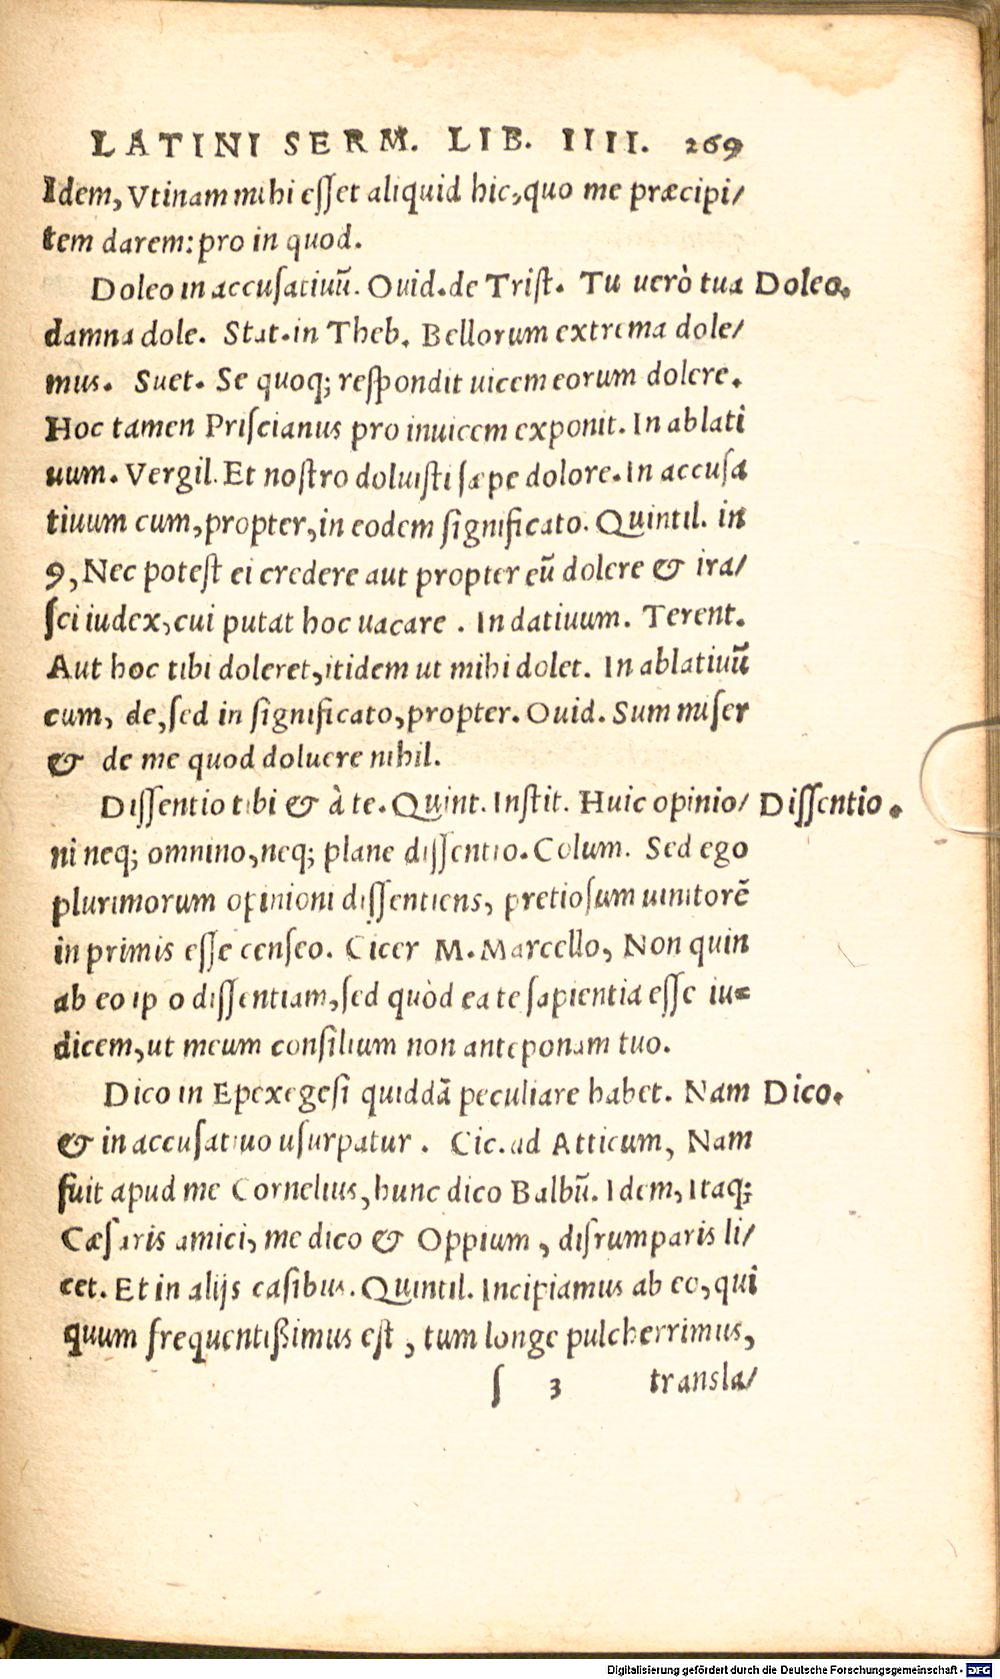 LATINI SERM. LIB. IIII. 269
Idem, Vtinam mihi esset aliquid hic, quo me præcipi/
tem darem: pro in quod.
Doleo in accusatiuũ. Ouid. de Trist. Tu uerò tua Doleo.
damna dole. Stat. in Theb. Bellorum extrema dole/
mus. Suet. Se quoq; respondit uicem eorum dolere.
Hoc tamen Priscianus pro inuicem exponit. In ablati
uum. Vergil. Et nostro doluisti sæpe dolore. In accusa
tiuum cum, propter, in eodem significato. Quintil. in
9, Nec potest ei credere aut propter eũ dolere & ira/
sci iudex, cui putat hoc uacare . In datiuum. Terent.
Aut hoc tibi doleret, itidem ut mihi dolet. In ablatiuũ
cum, de, sed in significato, propter. Ouid. Sum miser
& de me quod doluere nihil.
Dissentio tibi & à te. Quint. Instit. Huic opinio/ Dissentio.
ni neq; omnino, neq; plane dissentio. Colum. Sed ego
plurimorum opinioni dissentiens, pretiosum uinitorẽ
in primis esse censeo. Cicer M. Marcello, Non quin
ab eo ip o dissentiam, sed quòd ea te sapientia esse iu=
dicem, ut meum consilium non anteponam tuo.
Dico in Epexegesi quiddã peculiare habet. Nam Dico.
& in accusatiuo usurpatur . Cic. ad Atticum, Nam
fuit apud me Cornelius, hunc dico Balbũ. Idem, Itaq;
Cæsaris amici, me dico & Oppium , disrumparis li/
cet. Et in alijs casibus. Quintil. Incipiamus ab eo, qui
quum frequentißimus est , tum longe pulcherrimus,
s 3 transla/
Digitalisierung gefördert durch die Deutsche Forschungsgemeinschaft - DFG